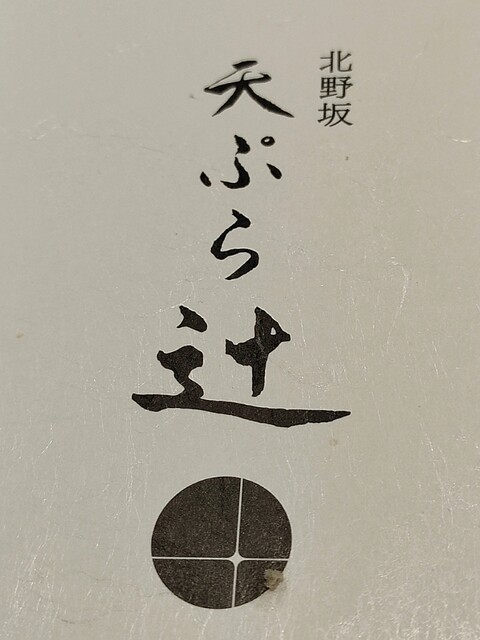 北野坂
天ぷら
辻